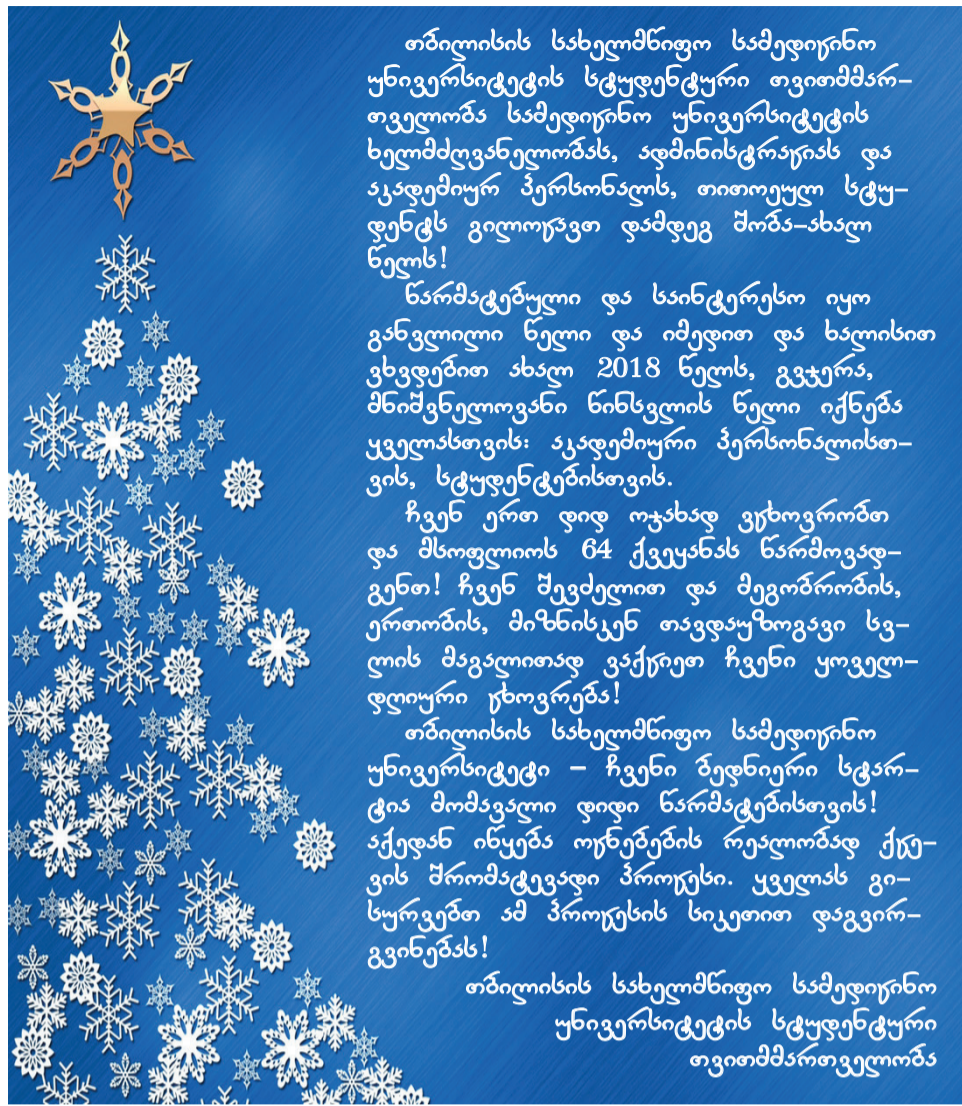 თბილისის სახელმწიფო სამედიცინო
უნივერსიტეტის სტუდენტური თვითმმარ–
თველობა სამედიცინო უნივერსიტეტის
ხელმძღვანელობას, ადმინისტრაციას და
აკადემიურ პერსონალს, თითოეულ სტუ–
დენტს გილოცავთ დამდეგ შობა–ახალ
წელს!
წარმატებული და საინტერესო იყო
განვლილი წელი და იმედით და ხალისით
ვხვდებით ახალ 2018 წელს, გვჯერა,
მნიშვნელოვანი წინსვლის წელი იქნება
ყველასთვის: აკადემიური პერსონალისთ–
ვის, სტუდენტებისთვის.
ჩვენ ერთ დიდ ოჯახად ვცხოვრობთ
და მსოფლიოს 64 ქვეყანას წარმოვად–
გენთ! ჩვენ შევძელით და მეგობრობის,
ერთობის, მიზნისკენ თავდაუზოგავი სვ–
ლის მაგალითად ვაქციეთ ჩვენი ყოველ–
დღიური ცხოვრება!
თბილისის სახელმწიფო სამედიცინო
უნივერსიტეტი – ჩვენი ბედნიერი სტარ–
ტია მომავალი დიდი წარმატებისთვის!
აქედან იწყება ოცნებების რეალობად ქცე–
ვის შრომატევადი პროცესი. ყველას გი–
სურვებთ ამ პროცესის სიკეთით დაგვირ–
გვინებას!
თბილისის სახელმწიფო სამედიცინო
უნივერსიტეტის სტუდენტური
თვითმმართველობა